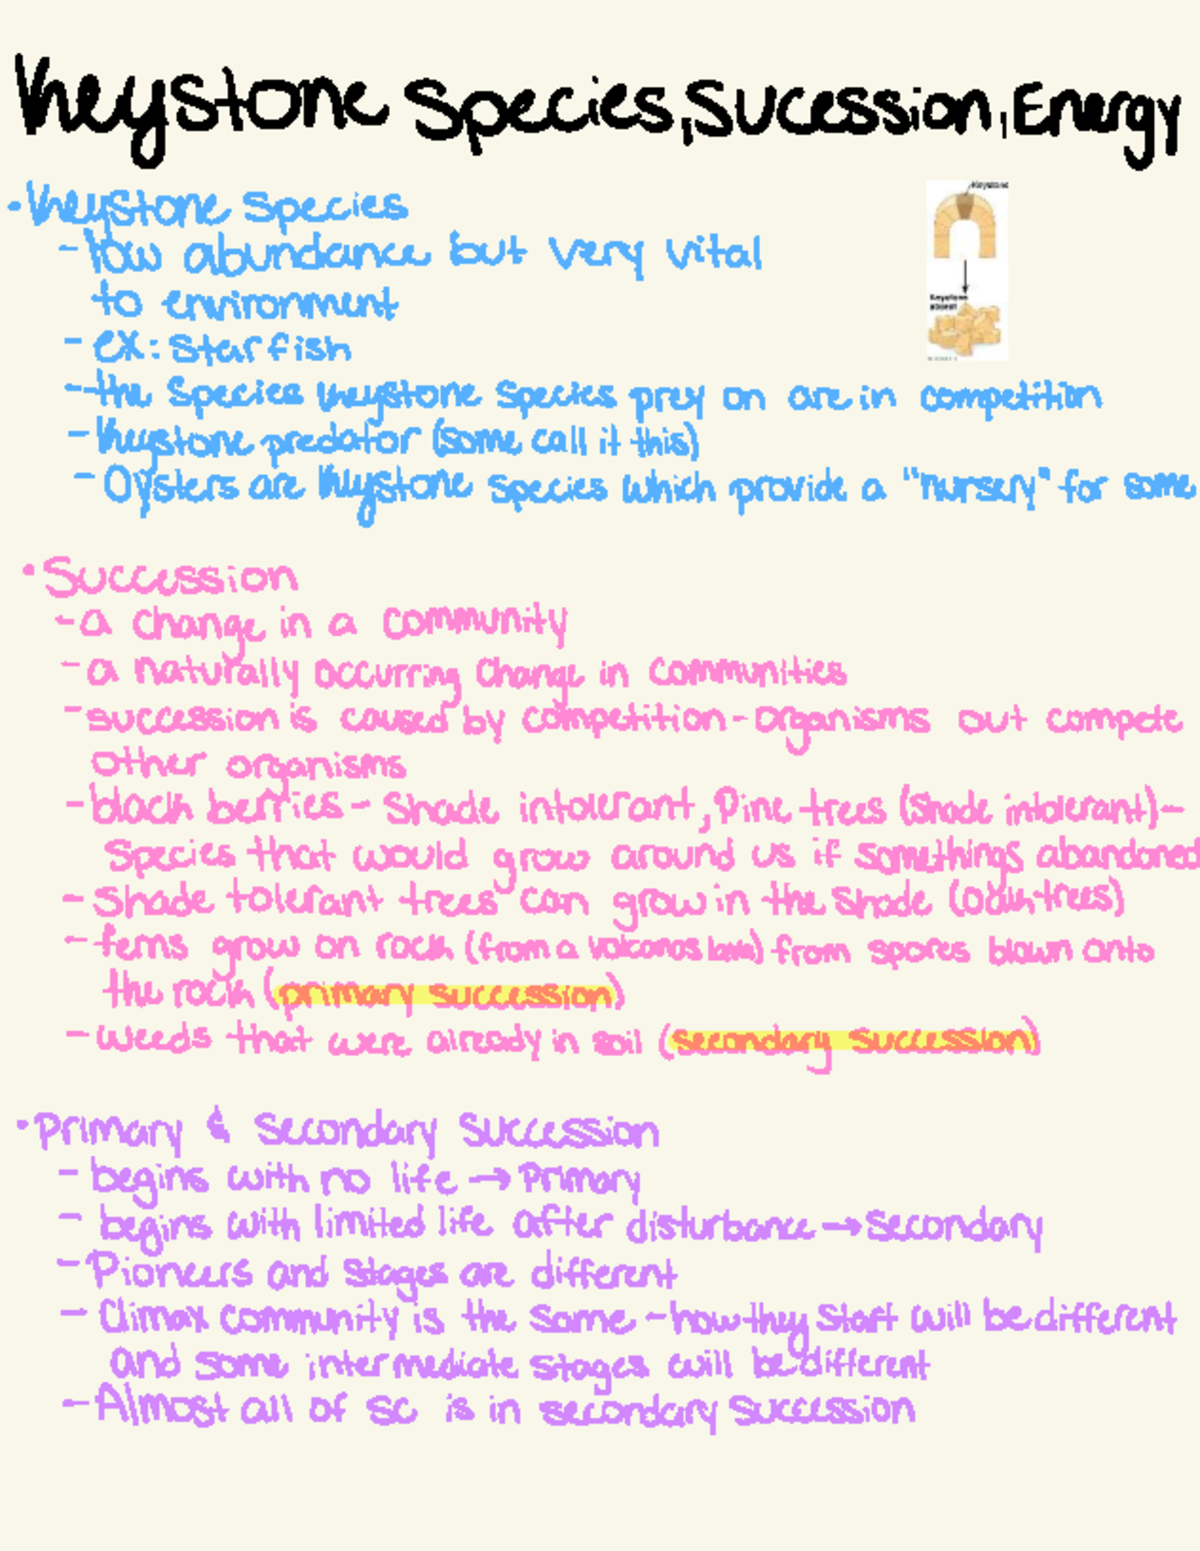 Keystone Species, Sucession, Energy
Keystone
Keystone absent
• Keystone Species
- low abundance but very vital
to environment
- ex: Starfish
- the species keystone species prey on are in competition
- Keystone predator (some call it this)
- Oysters are keystone species which provide a "nursery" for some
• Succession
- a change in a community
- a naturally occurring change in communities
- succession is caused by competition - organisms out compete
other organisms
- black berries - Shade intolerant, Pine trees (Shade intolerant) -
Species that would grow around us if somethings abandoned
- Shade tolerant trees can grow in the shade (oak trees)
- ferns grow on rock (from a volcanos lava) from spores blown onto
the rock (primary succession)
- weeds that were already in soil (secondary succession)
• Primary & Secondary Succession
- begins with no life → Primary
- begins with limited life after disturbance → Secondary
- Pioneers and stages are different
- Climax community is the same - how they start will be different
and some intermediate stages will be different
- Almost all of SC is in secondary succession